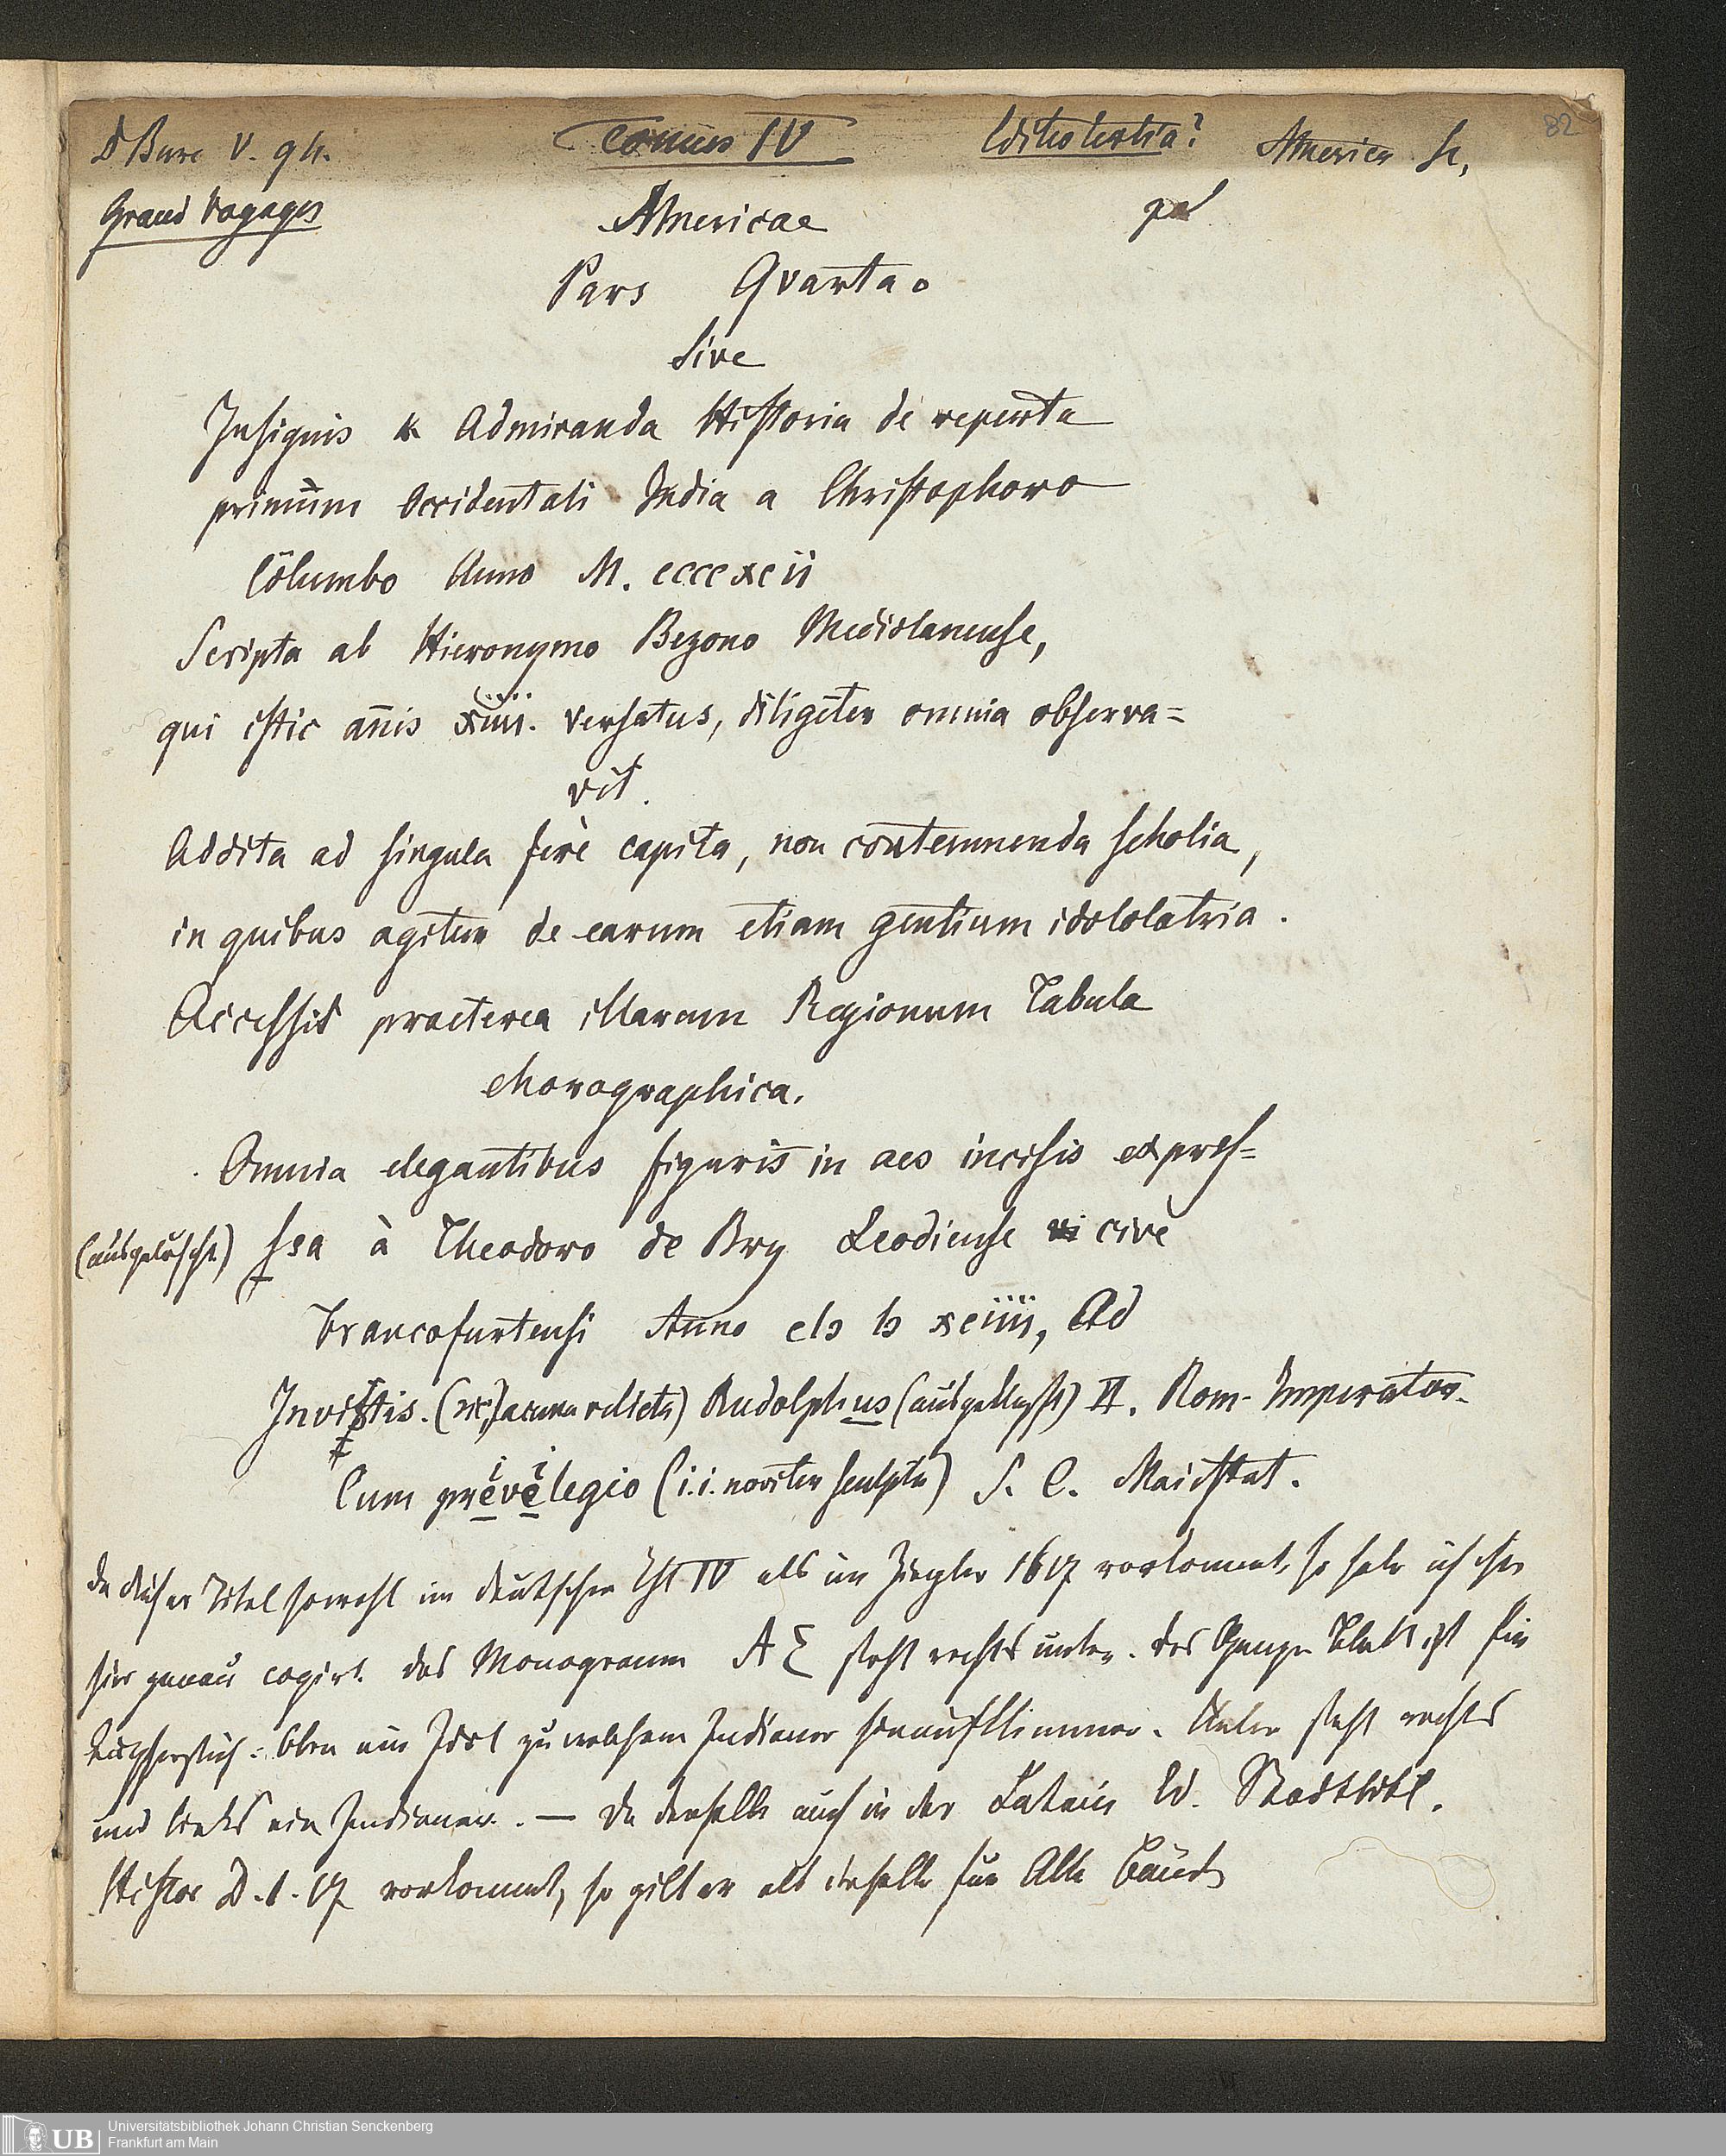 D Bure V. 94.
Tomus IV
Editio tertia?
America
82
Grand Voyages
Americae
Pars Qvarta.
Sive
Insignis & Admiranda Historia de reperta
primùm Occidentali India a Christophoro
Columbo Anno M. ccccxcii
Scripta ab Hieronymo Bezono Mediolanense,
qui istic anīs xiiii. versatus, diligēter omnia observa=
vit.
Addita ad singula ferè capita, non contemnenda scholia,
in quibus agitur de earum etiam gentium idololatria.
Accessit praeterea illarum Regionum Tabula
chorographica.
Omnia elegantibus figuris in aes incisis expres=
(ausgelöscht) ssa à Theodoro de Bry Leodiense cive
Francofurtensi Anno cIↄ Iↄ xciiii, Ad
Invictis. (sic, lacuna relicta) Rudolphus (ausgelöscht) II. Rom. Imperator.
Cum prevelegio (i.i. noviter sculpta) S. C. Maiestat.
Da dieser Titel sowohl im deutschen Th IV als im Ziegler 1617 vorkommt, so habe ich ihn
hier genau copirt. Das Monogramm A Σ steht rechts unten. Das Ganze Blatt ist ein
Kupferstich: Oben ein Idol zu welchem Indianer hinaufklimmen. Unten steht rechts
und links ein Indianer. — Da derselbe auch in der Latein Ed. Stadtbibl.
Histor D. 1. 17 vorkommt, so gilt er als derselbe für Alle Bände
Universitätsbibliothek Johann Christian Senckenberg
Frankfurt am Main
UB